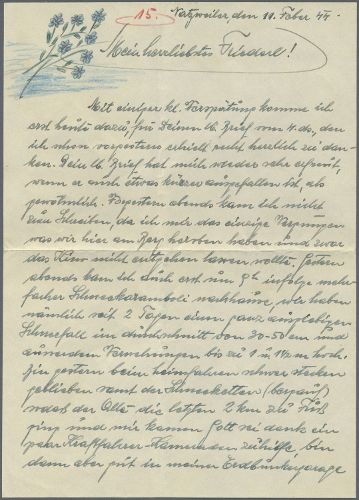 15. Natzweiler, den 11. Feber 44.
Mein herrliebstes Friederl!
Mit einiger kl. Verspätung komme ich
erst heute dazu, für Deinen lb. Brief vom 4. ds., den
ich schon vorgestern erhielt recht herzlich zu dan-
ken. Dein lb. Brief hat mich wieder sehr erfreut,
wenn er auch etwas kürzer ausgefallen ist, als
gewöhnlich. Vorgestern abends kam ich nicht
zum Schreiben, da ich mir das einzige Vergnügen
was wir hier am Berg haben und zwar
das Kino nicht entgehen lassen wollte. Gestern
abends kam ich auch erst um 9h infolge mehr-
facher nachhause, wir haben
nämlich seit 2 Tagen einen ganz ausgiebigen
Schneefall im durchschnitt von 30-50 cm und
ausserdem Verwehungen bis zu 1 u. 1½ m hoch.
Bin gestern beim heimfahren schwer stecken
geblieben samt der Schneeketten (bergauf)
die letzten 2 km zu Fuß
ging und mir kamen Gott sei dank ein
paar Kraftfahrer-Kameraden zuhilfe, bin
dann aber gut in meiner Erdbunkergarage